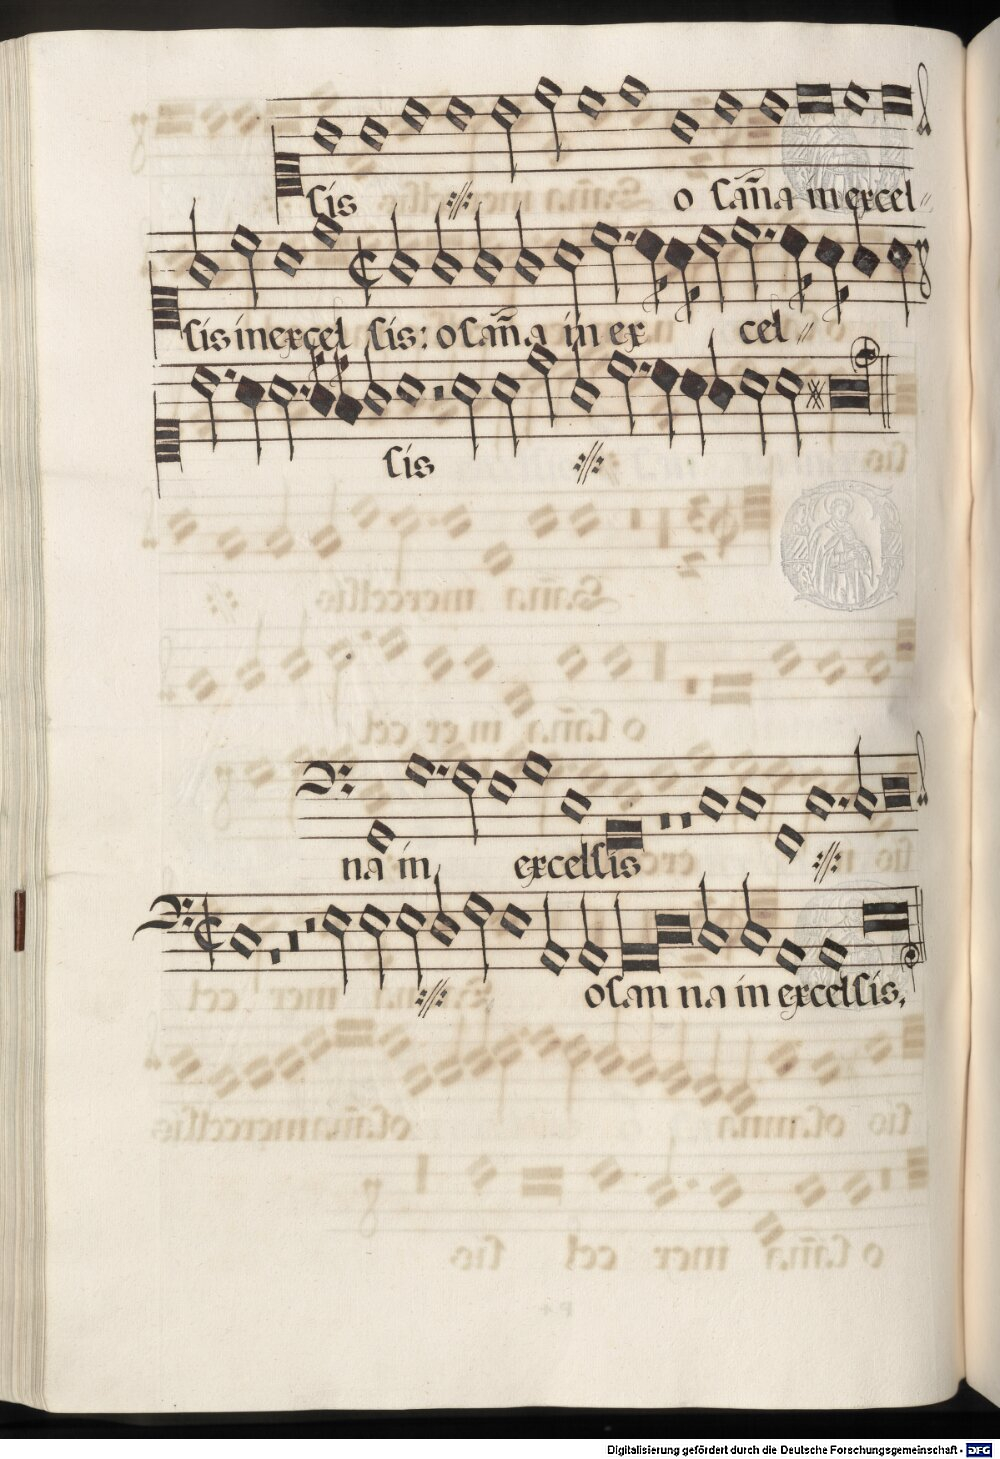 sis o saña in excel
sis in excel sis: o sañna in ex cel
sis
na in excelsis
osan na in excelsis,
Digitalisierung gefördert durch die Deutsche Forschungsgemeinschaft - DFG